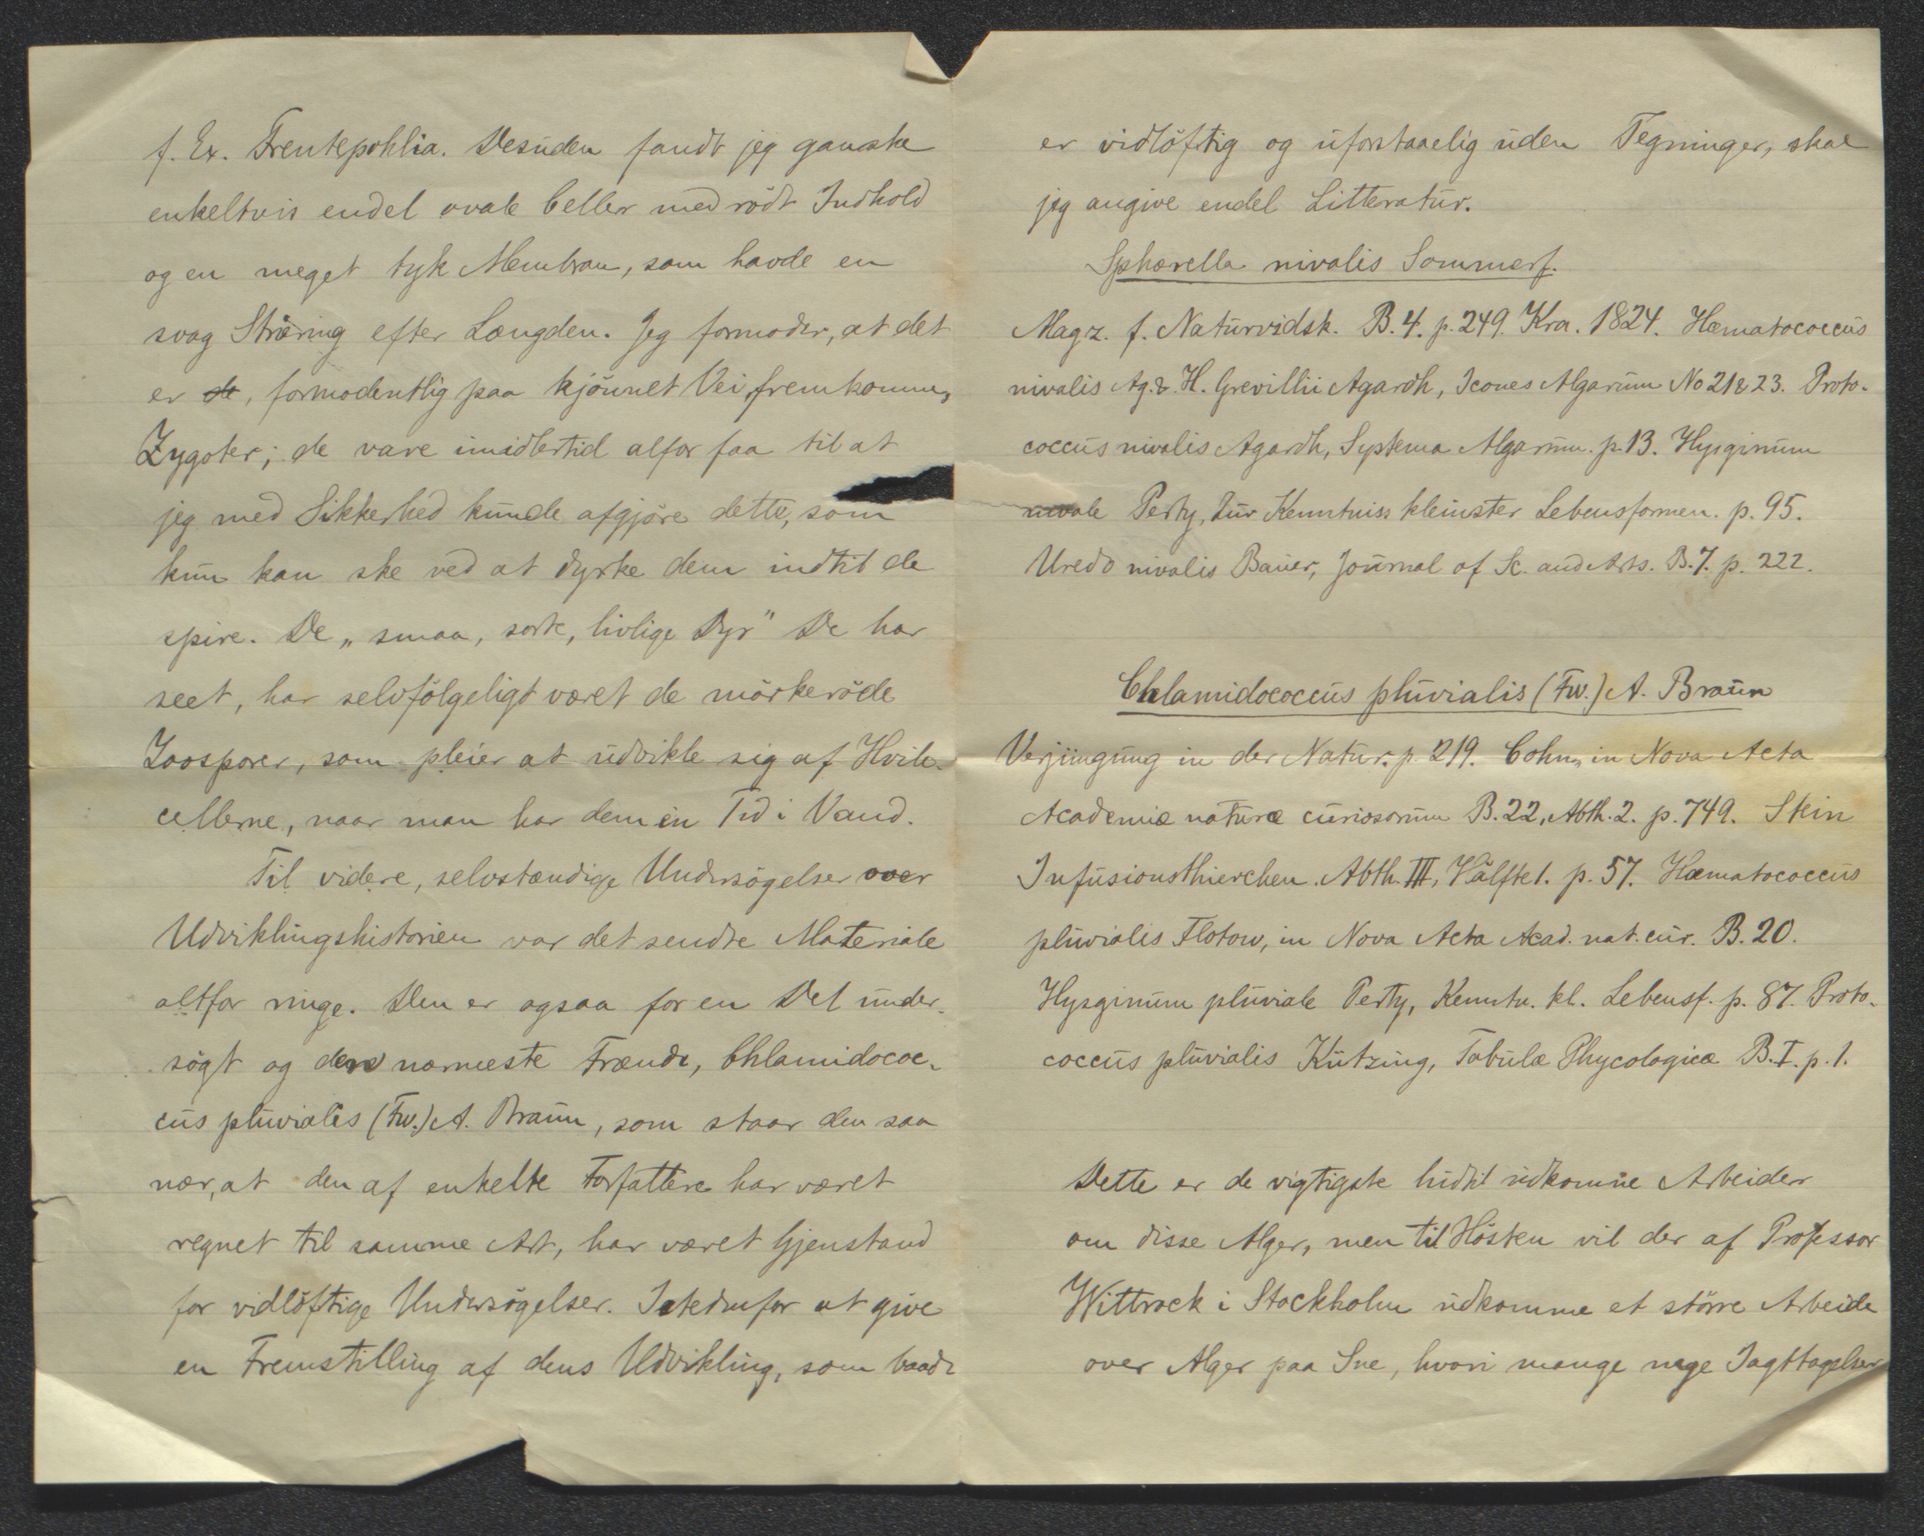 f. Ex. Trentepohlia. Desuden fandt jeg ganske
enkeltvis endel ovale Celler med rödt Indhold
og en meget tyk Membran, som havde en
svag Striæring efter Længden. Jeg formoder, at det
er de, formodentlig paa kjönnet Vei, fremkomne,
Zygoter; de vare imidlertid alfor faa til at
jeg med Sikkerhed kunde afgjöre dette, som
kun kan ske ved at dyrke dem indtil de
spire. De „smaa, sorte, livlige Dyr" De har
seet, har selvfölgeligt været de mörkeröde
Zoosporer, som pleier at udvikle sig af Hvile-
cellerne, naar man har dem en Tid i Vand.
Til videre, selvstændige Undersögelser over
Udviklingshistorien var det sendte Materiale
altfor ringe. Den er ogsaa for en Del under-
sögt og dens nærmeste Frænde, Chlamidococ-
cus pluvialis (Fw.) A. Braun, som staar den saa
nær, at den af enkelte Forfattere har været
regnet til samme Art, har været Gjenstand
for vidlöftige Undersögelser. Istedenfor at give
en Fremstilling af dens Udvikling, som baade
er vidlöftig og uforstaaelig uden Tegninger, skal
jeg angive endel Litteratur.
Sphærella nivalis Sommerf.
Magz. f. Naturvidsk. B. 4. p. 249. Kra. 1824. Hæmatococcus
nivalis Ag. & H. Grevillii Agardh, Icones Algarum No 21 & 23. Proto-
coccus nivalis Agardh, Systema Algarum. p. 13. Hysginum
nivale Perty, Zur Kenntniss kleinster Lebensformen. p. 95.
Uredo nivalis Bauer, Journal of Sc. and Arts. B. 7. p. 222.
Chlamidococcus pluvialis (Fw.) A. Braun
Verjüngung in der Natur. p. 219. Cohn, in Nova Acta
Academiæ naturæ curiosorum B. 22, Abth. 2. p. 749. Stein
Infusionsthierchen. Abth. III, Hälfte 1. p. 57. Hæmatococcus
pluvialis Flotow, in Nova Acta Acad. nat. cur. B. 20.
Hysginum pluviale Perty, Kenntn. kl. Lebensf. p. 87. Proto-
coccus pluvialis Kützing, Tabulæ Phycologicæ B. I. p. 1.
Dette er de vigtigste hidtil udkomne Arbeider
om disse Alger, men til Hösten vil der af Professor
Wittrock i Stockholm udkomme et större Arbeide
over Alger paa Sne, hvori mange nye Iagttagelser